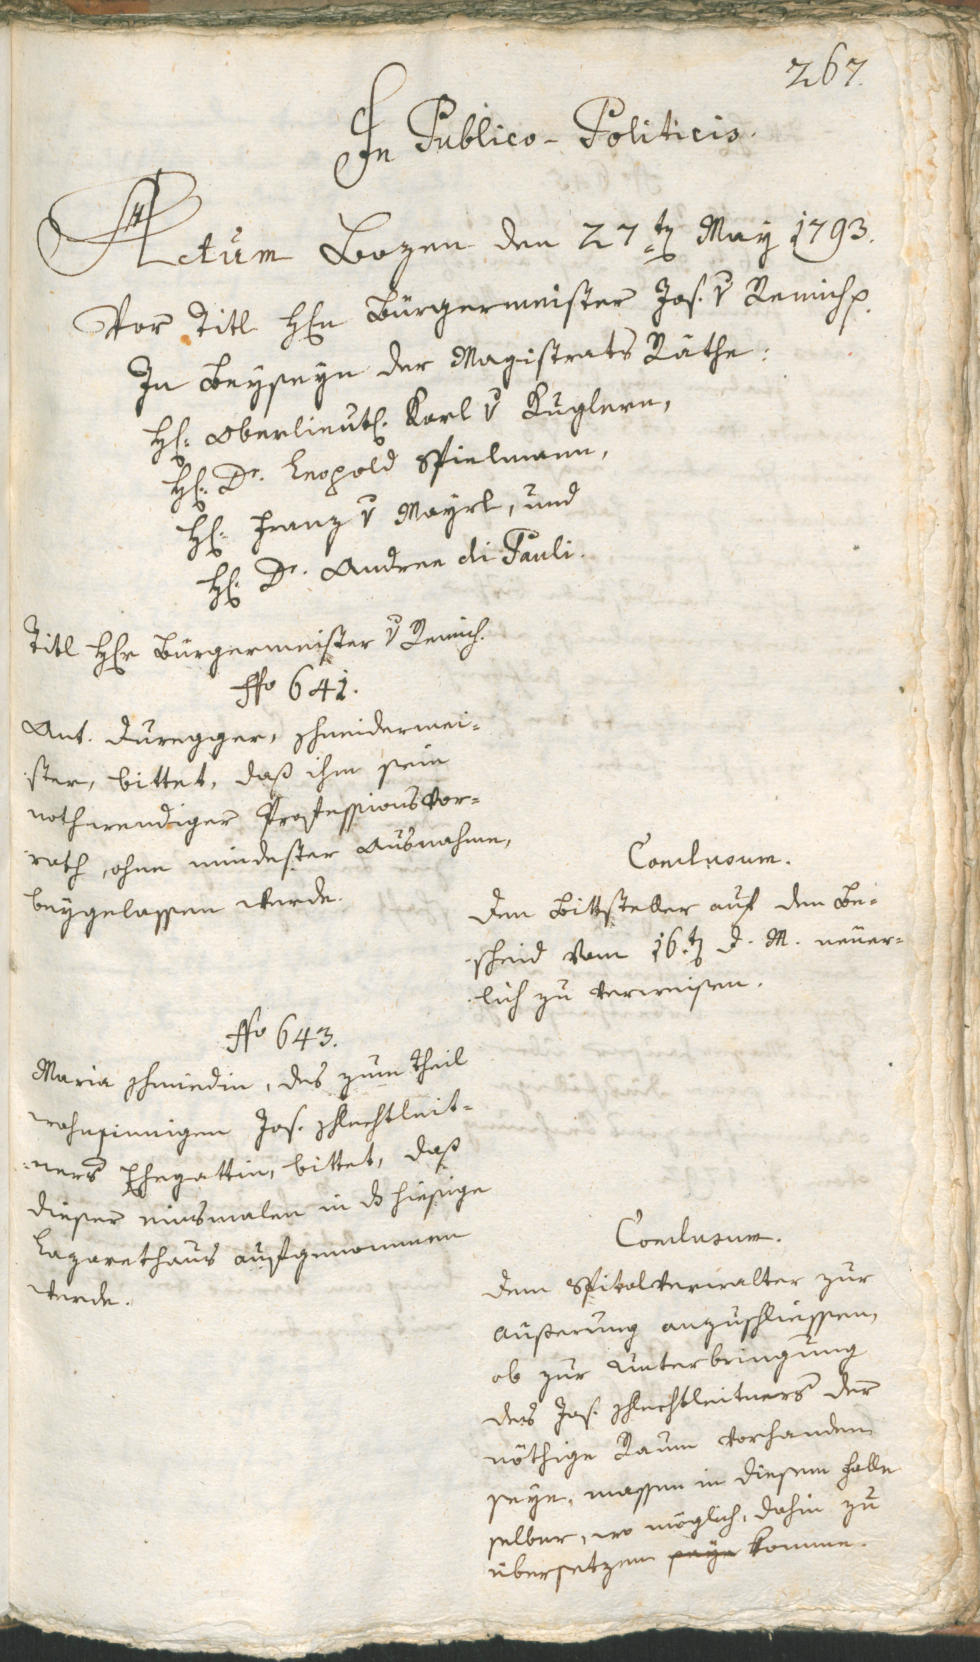 267.
In Publico-Politicis.
Actum Bozen den 27ten May 1793.
Vor Titl Hrn Bürgermeister Jos. v Remich p.
In Beyseyn der Magistrats Räthe:
H: Oberlieut. Karl v Kuglern,
H: Dr. Leopold Spielmann,
H: Franz v Mayrl, und
H: Dr. Andree di Pauli.
Titl Hr Bürgermeister v Remich.
No 641.
Ant. Duregger, Schneidermei-
ster, bittet, daß ihm sein
nothwendiger Professionsvor-
rath, ohne mindester Ausnahme,
beygelassen werde.
Conclusum.
Den Bittsteller auf den Be-
scheid vom 16ten d. M. neuer-
lich zu verweisen.
No 643.
Maria Schmiedin, des zum Theil
wahnsinnigen Jos. Schlechtleit-
ners Ehegattin, bittet, daß
dieser einsmalen in d hiesige
Lazarethaus aufgenommen
werde.
Conclusum.
Dem Spitalverwalter zur
Äußerung anzuschliessen,
ob zur Unterbringung
des Jos. Schlechtleitners der
nöthige Raum vorhanden
seye, massen in diesem Falle
selber, wo möglich, dahin zu
übersetzen seye komme.